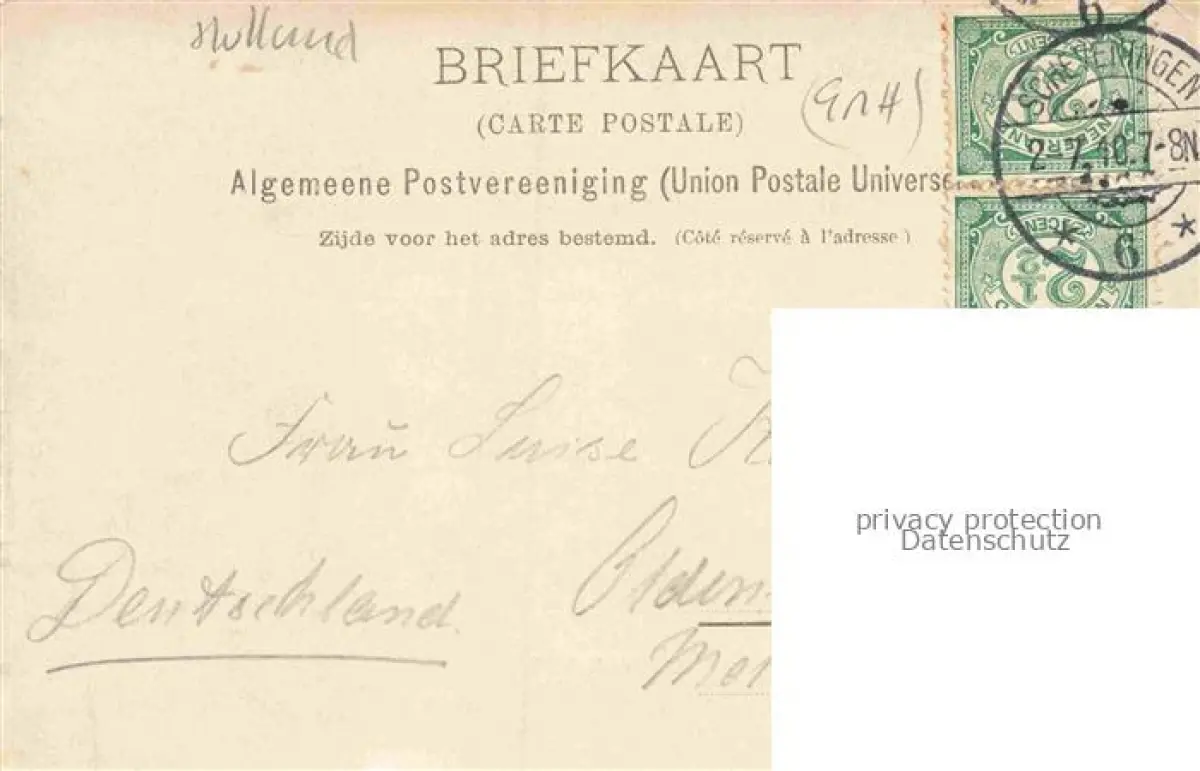 Holland
BRIEFKAART
(CARTE POSTALE)
Algemeene Postvereeniging (Union Postale Universe
Zijde voor het adres bestemd. (Côté réservé à l'adresse)
SCHEVENINGEN
2-7.10.7-8N
6
6
Frau Luise
Deutschland.
privacy protection
Datenschutz